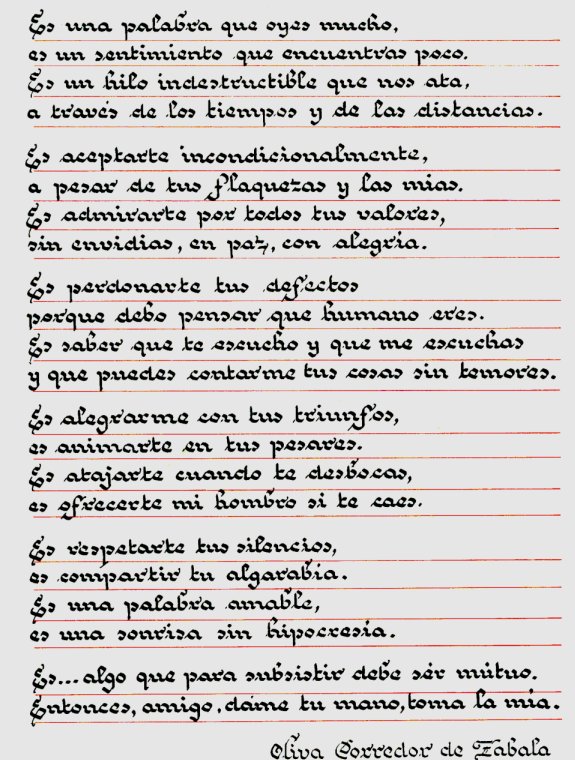 Es una palabra que oyes mucho,
es un sentimiento que encuentras poco.
Es un hilo indestructible que nos ata,
a través de los tiempos y de las distancias.
Es aceptarte incondicionalmente,
a pesar de tus flaquezas y las mias.
Es admirarte por todos tus valores,
sin envidias, en paz, con alegria.
Es perdonarte tus defectos
porque debo pensar que humano eres.
Es saber que te escucho y que me escuchas
y que puedes contarme tus cosas sin temores.
Es alegrarme con tus triunfos,
es animarte en tus pesares.
Es atajarte cuando te desbocas,
es ofrecerte mi hombro si te caes.
Es respetarte tus silencios,
es compartir tu algarabia.
Es una palabra amable,
es una sonrisa sin hipocresía.
Es... algo que para subsistir debe sér mútuo.
Entonces, amigo, dáme tu mano, toma la mía.
Oliva Corredor de Zabala